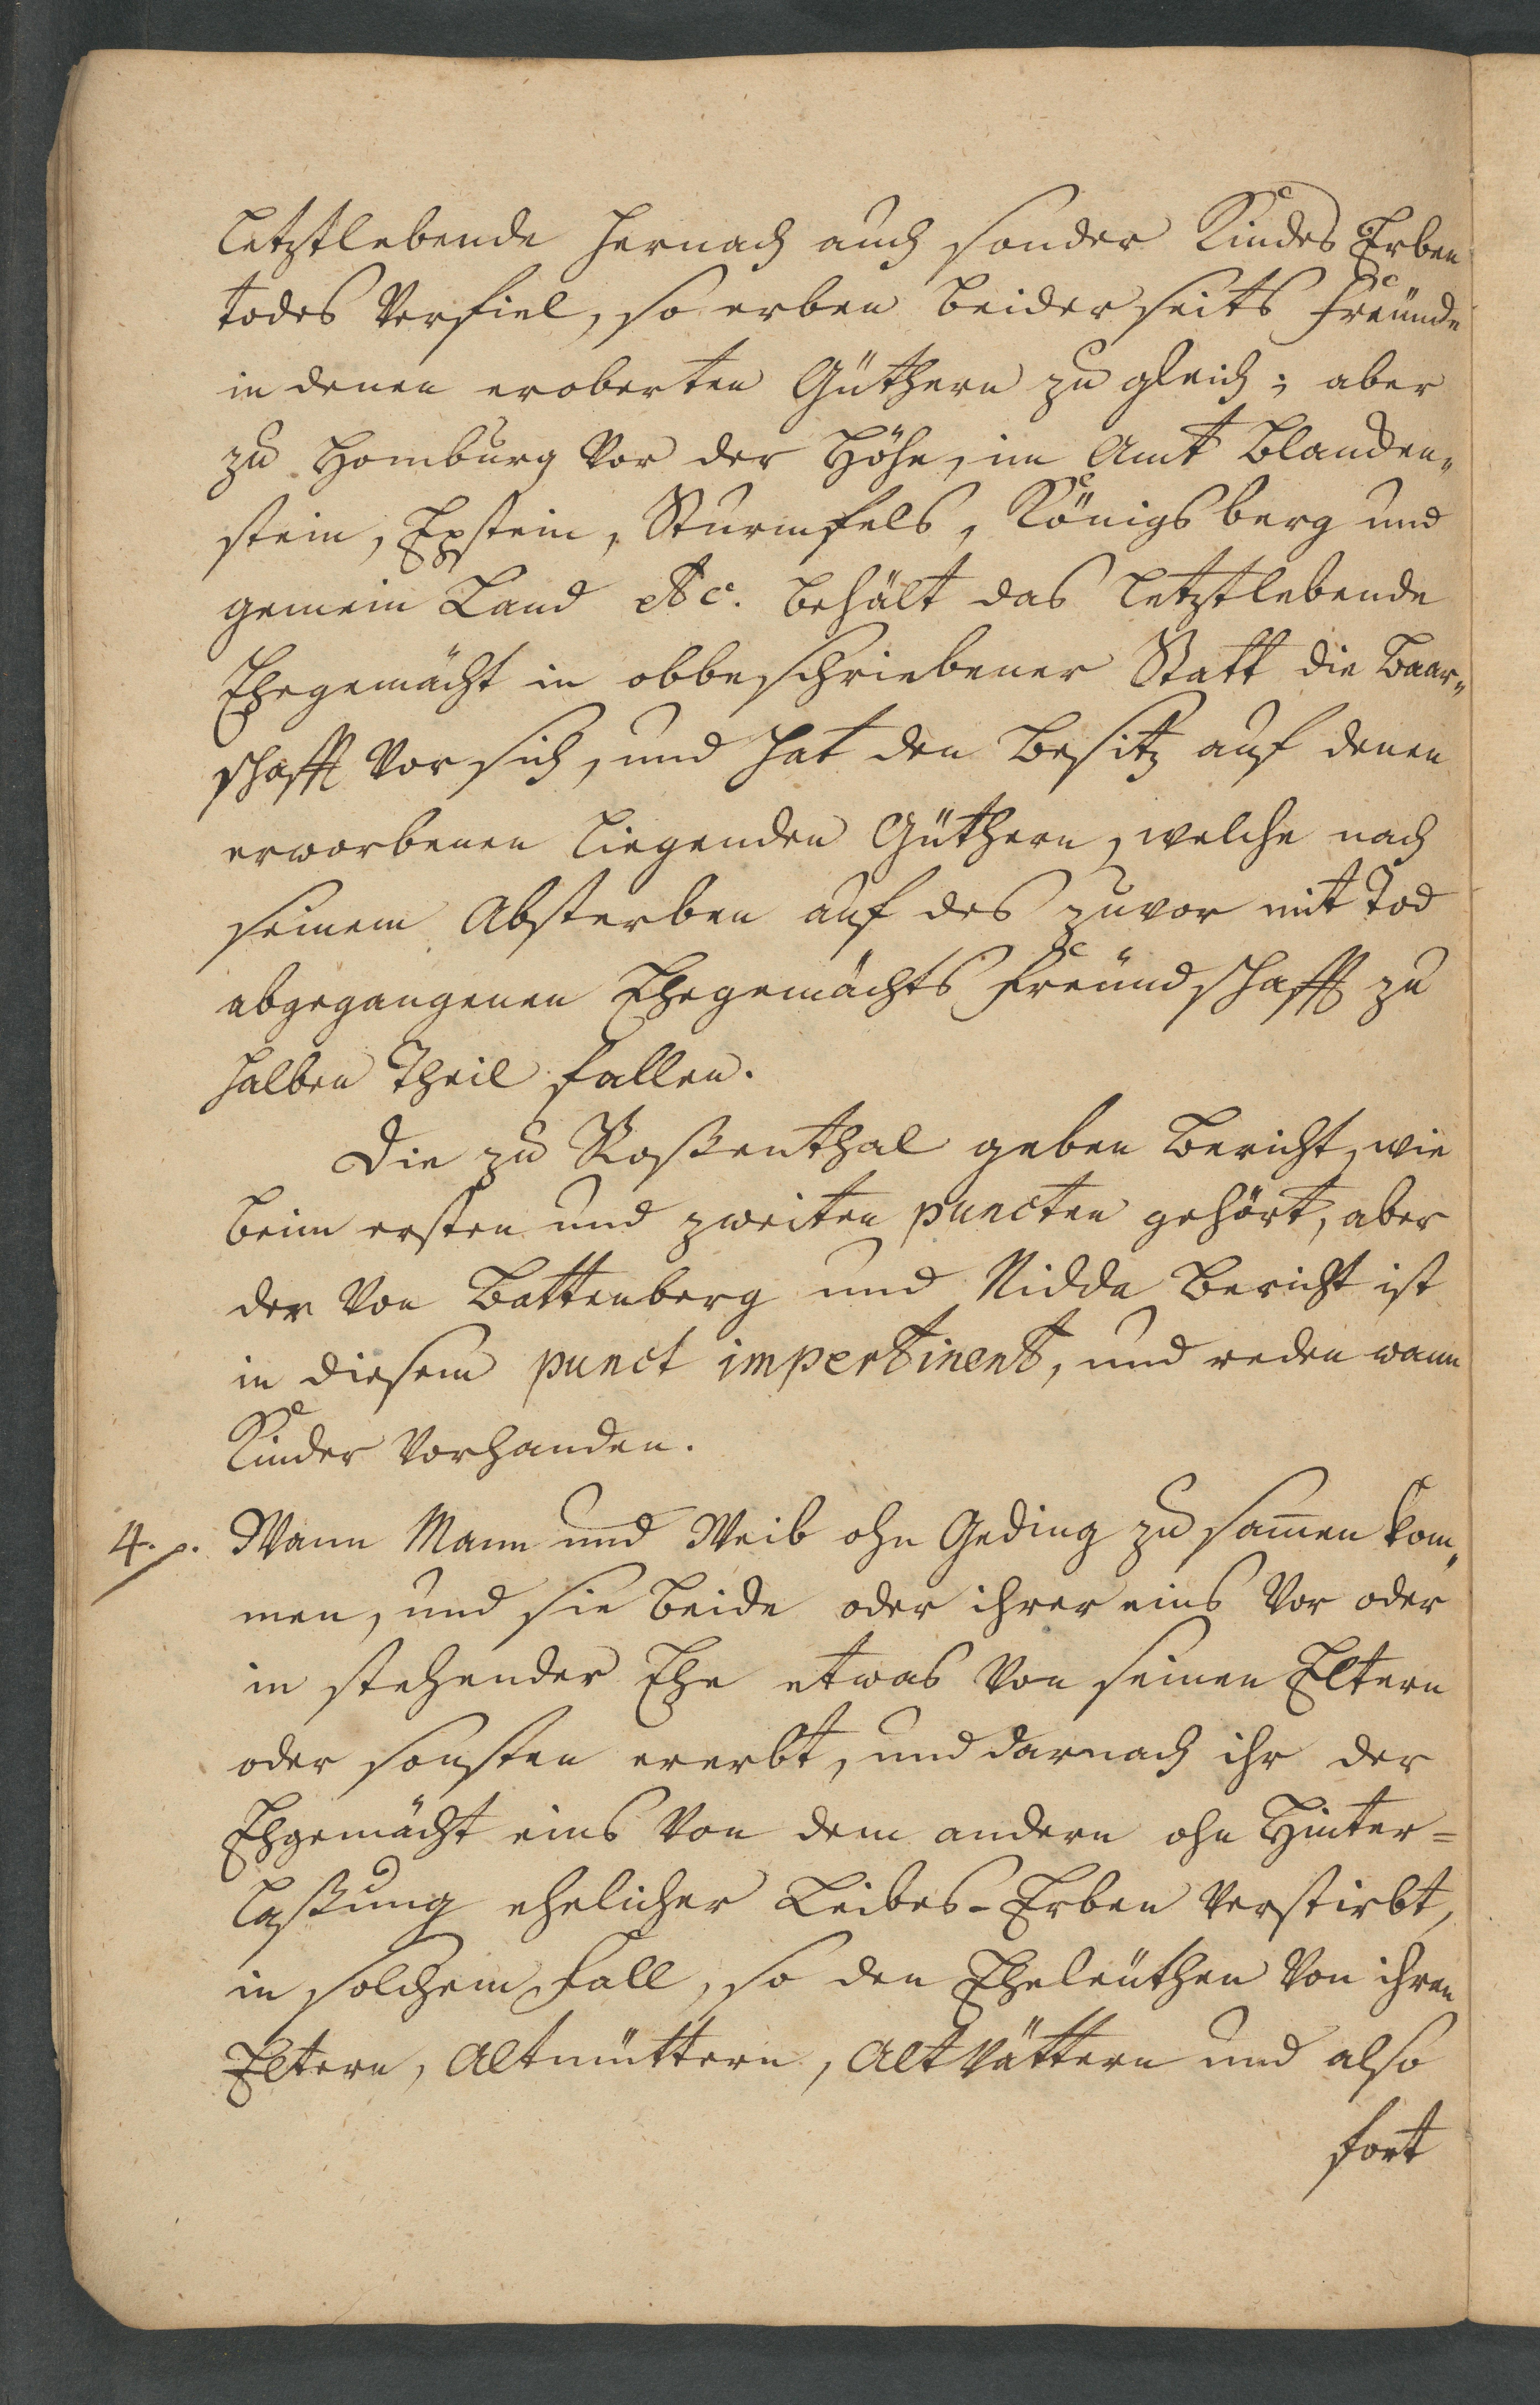 letztlebende hernach auch sonder Kindes Erben
todes verfiel, so erben beiderseits Freünde
in denen eroberten Güthern zu gleich; aber
zu Homburg vor der Höhe, im Amt Blanden„
stein, Epstein, Sturmfels, Königsberg und
gemein Land etc. behält das letztlebende
Ehegemächt in obbeschriebener Statt die Baar„
schafft vor sich, und hat den Besitz auf denen
erworbenen liegenden Güthern, welche nach
seinem Absterben auf des zuvor mit Tod
abgegangenen Ehegemächts Freündschafft zu
halben Theil fallen.
Die zu Roßenthal geben Bericht, wie
beim ersten und zweiten puncten gehört, aber
der von Battenberg und Nidda Bericht ist
in diesem punct impertinent, und reden wann
Kinder vorhanden.
4. p. Wann Mann und Weib ohn Geding zu sam̄en kom„
men, und sie beide oder ihrer eins vor oder
in stehender Ehe etwas von seinen Eltern
oder sonsten ererbt, und darnach ihr der
Ehgemächt eins von dem andern ohn Hinter=
laßung ehelicher Leibes-Erben verstirbt,
in solchem Fall, so den Eheleüthen von ihren
Eltern, Altmüttern, Altvättern und also
fort